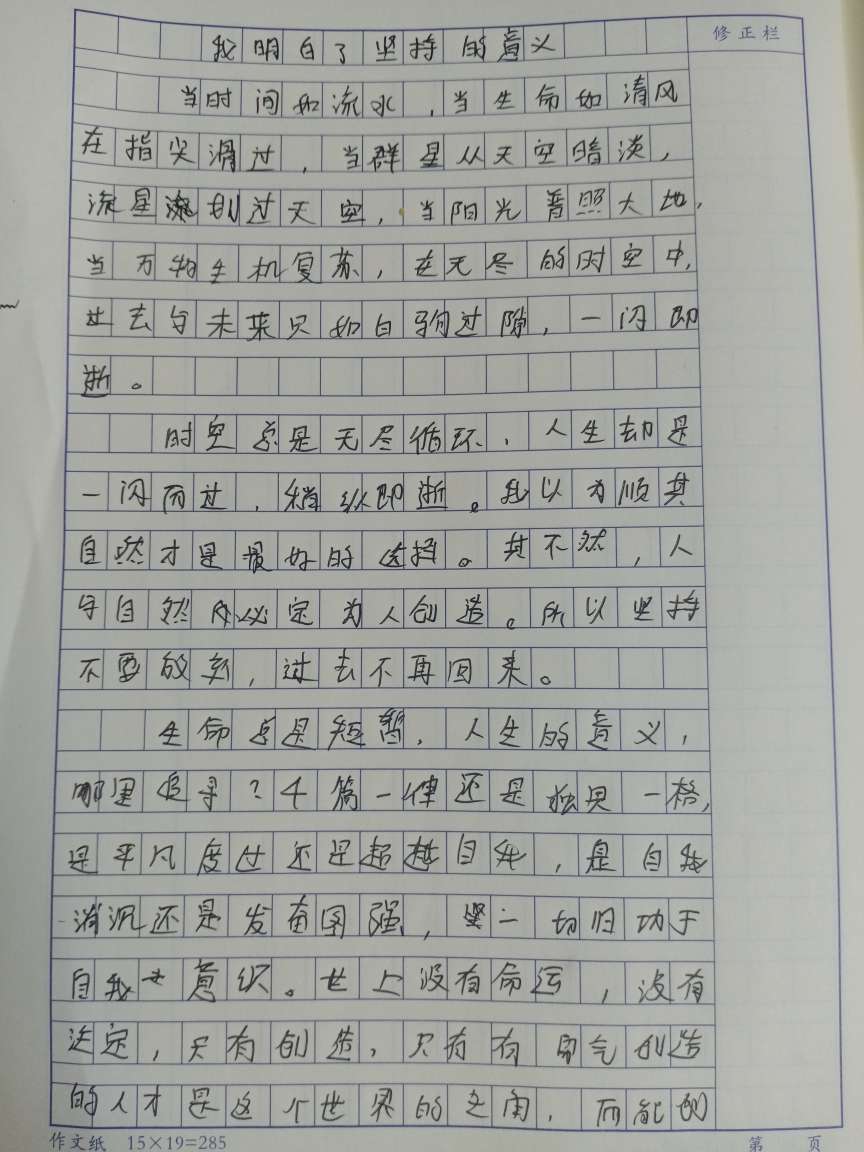 修正栏
我明白了坚持的意义
当时间如流水,当生命如清风
在指尖滑过,当群星从天空暗淡,
流星划过天空,当阳光普照大地,
当万物生机复苏,在无尽的时空中,
过去与未来只如白驹过隙,一闪即
逝。
时空总是无尽循环,人生却是
一闪而过,稍纵即逝。我以为顺其
自然才是最好的选择。其不然,人
与自然必定为人创造。所以坚持
不要放弃,过去不再回来。
生命总是短暂,人生的意义,
哪里追寻?千篇一律还是独具一格,
是平凡度过还是超越自我,是自我
消沉还是发奋图强,一切归功于
自我意织。世上没有命运,没有
法定,只有创造,只有有勇气创造
的人才是这个世界的主角,而能
作文纸 15×19=285 第 页